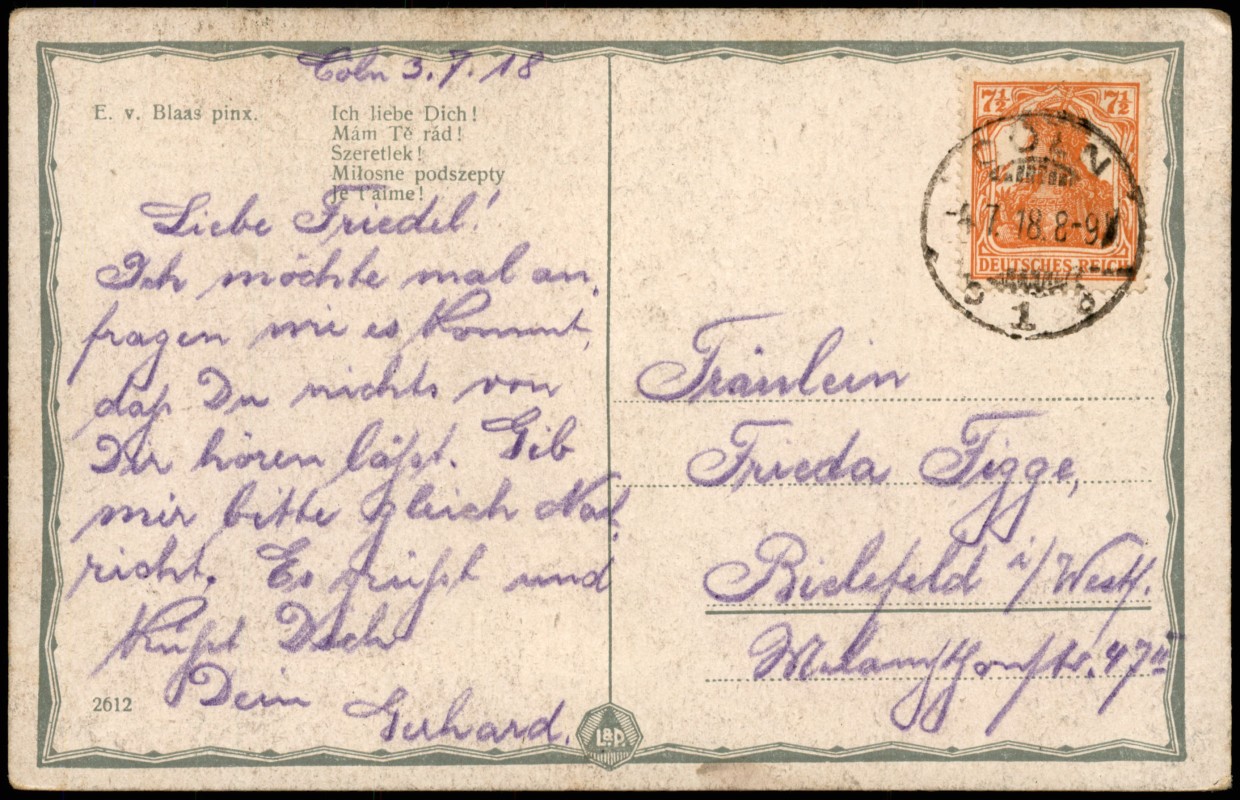 Cöln 3.7.18
E. v. Blaas pinx.
Ich liebe Dich!
Mám Tě rád!
Szeretlek!
Miłosne podszepty
Je t'aime!
Liebe Friedel!
Ich möchte mal an,
fragen wie es kommt,
daß Du nichts von
Dir hören läßt. Gib
mir bitte gleich Nach
richt. Es grüßt und
küßt Dich
Dein
Gerhard.
2612
L&P.
7½ 7½
DEUTSCHES REICH
CÖLN
-4.7.18.8-9V
1
Fräulein
Frieda Figge,
Bielefeld i/Westf.
Melanchthonstr. 47